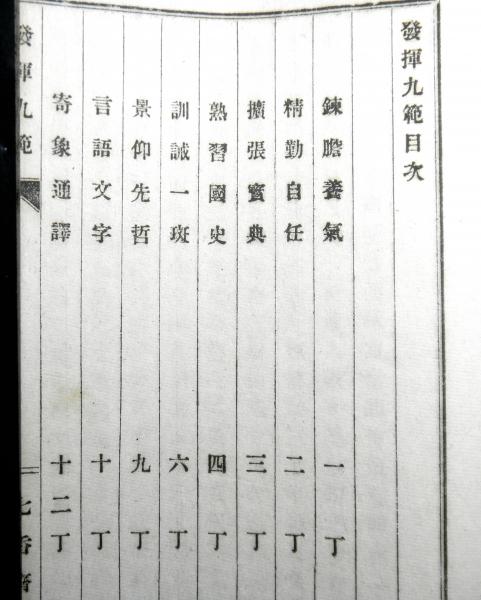 發揮九範目次
鍊膽養氣 一丁
精勤自任 二丁
擴張寳典 三丁
熟習國史 四丁
訓誡一斑 六丁
景仰先哲 九丁
言語文字 十丁
寄象通譯 十二丁
發揮九範